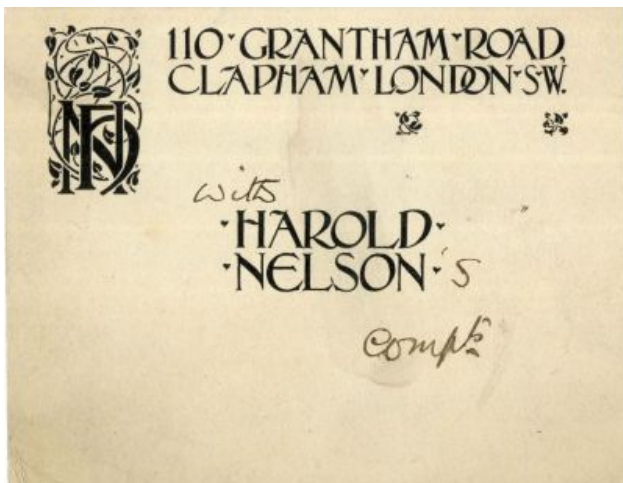 110 · GRANTHAM · ROAD,
CLAPHAM · LONDON · S·W.
with
· HAROLD ·
· NELSON · 's
Compts